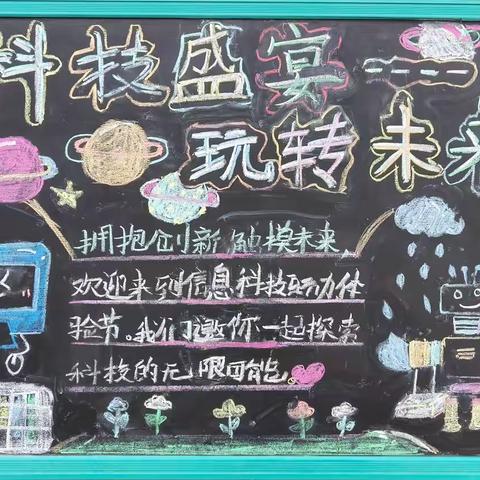 科技盛宴——
玩转未来
拥抱创新 触摸未来
欢迎来到信息科技互动体
验节。我们邀你一起探索
科技的无限可能